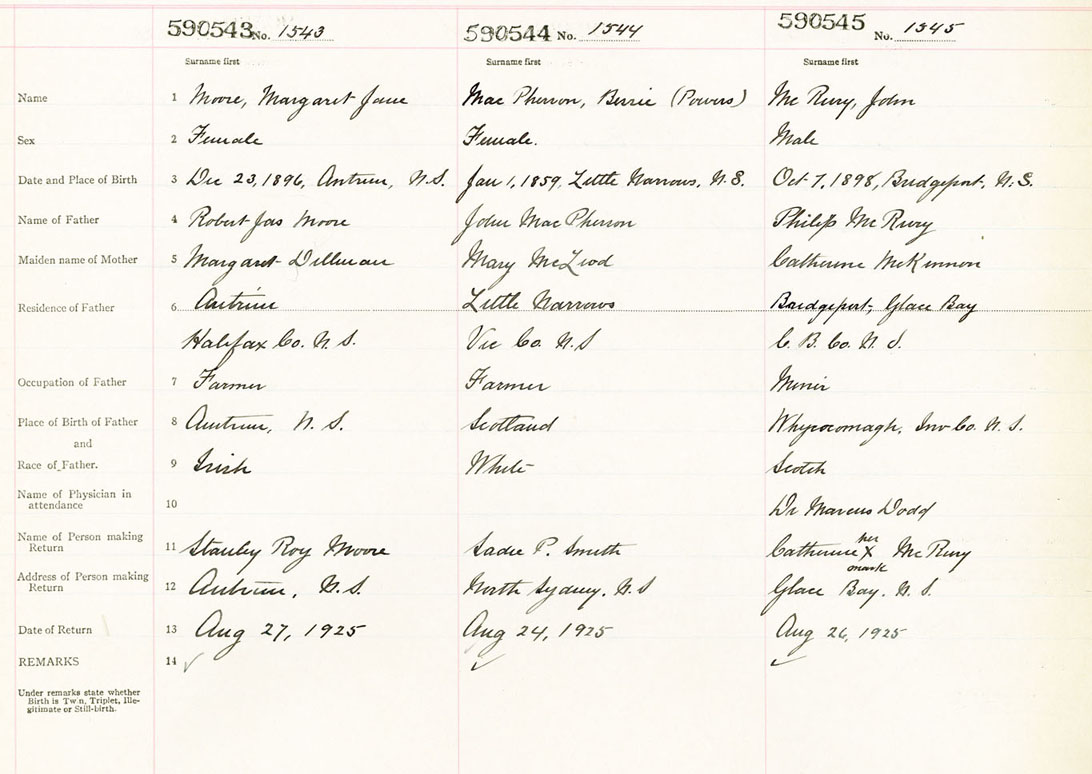 590543 No. 1543 590544 No. 1544 590545 No. 1545
Surname first Surname first Surname first
Name 1 Moore, Margaret Jane Mac Pherson, Bessie (Powers) Mc Rury, John
Sex 2 Female Female. Male
Date and Place of Birth 3 Dec 23, 1896, Antrim, N.S. Jan 1, 1859, Little Narrows, N.S. Oct 7, 1898, Bridgeport, N.S.
Name of Father 4 Robert Jas Moore John Mac Pherson Philip Mc Rury
Maiden name of Mother 5 Margaret Dillman Mary McLeod Catherine McKinnon
Residence of Father 6 Antrim Little Narrows Bridgeport, Glace Bay
Halifax Co. N.S. Vic Co. N.S C. B. Co. N. S.
Occupation of Father 7 Farmer Farmer Miner
Place of Birth of Father 8 Antrim, N. S. Scotland Whycocomagh, Inv Co. N. S.
and
Race of Father. 9 Irish White Scotch
Name of Physician in
attendance 10 Dr Marcus Dodd
Name of Person making
Return 11 Stanley Roy Moore Sadie P. Smith Catherine her X mark Mc Rury
Address of Person making
Return 12 Antrim, N.S. North Sydney. N.S Glace Bay. N. S.
Date of Return 13 Aug 27, 1925 Aug 24, 1925 Aug 26, 1925
REMARKS 14 ✓ ✓ ✓
Under remarks state whether
Birth is Twin, Triplet, Ille-
gitimate or Still-birth.